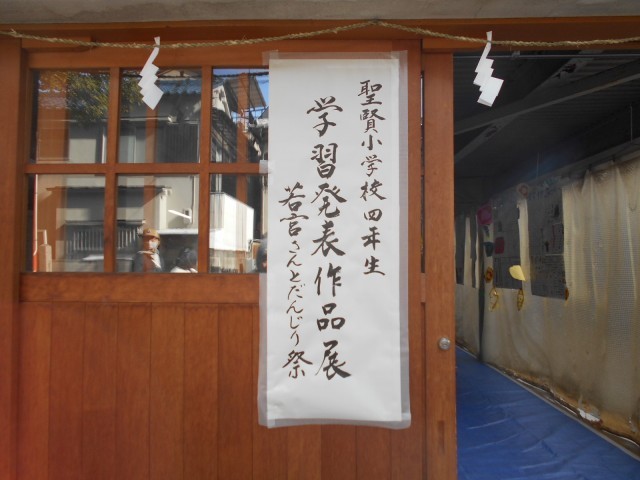 聖賢小学校四年生
学習発表作品展
若宮さんとだんじり祭